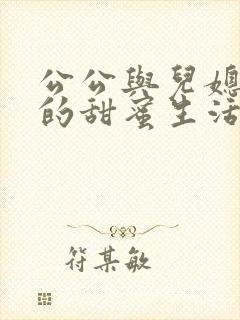 公公與兒媳
的甜蜜生活
符某敏